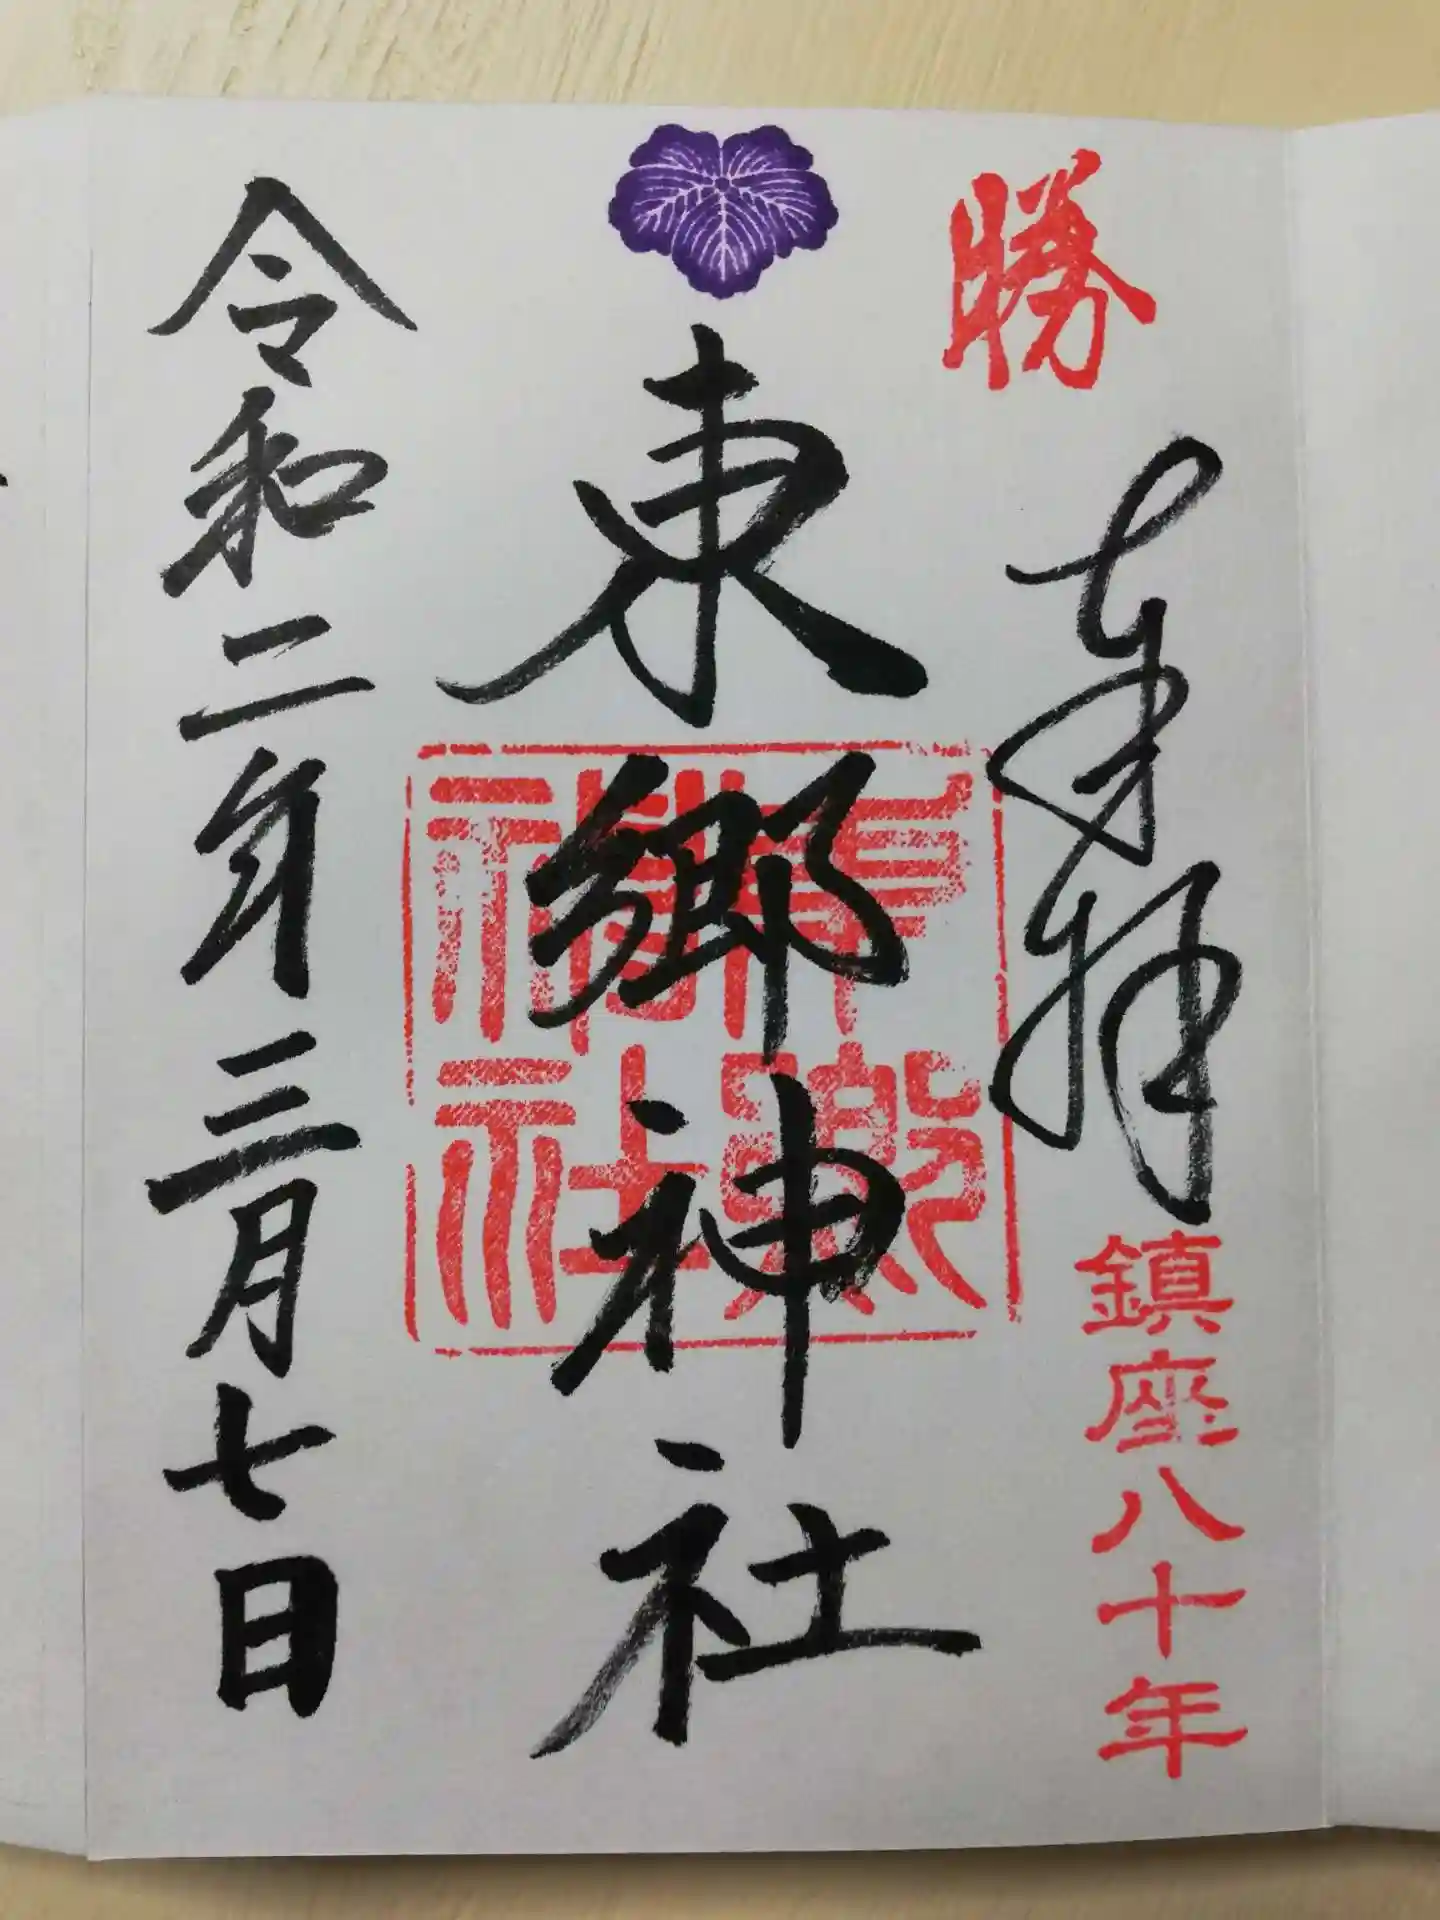 勝
奉拝
鎮座八十年
東郷神社
東郷神社
令和二年三月七日